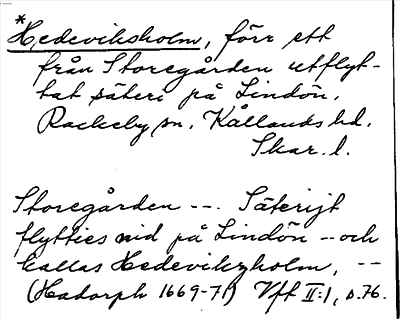 *Hedeviksholm, förr ett
från Storegården utflyt-
tat säteri på Lindön.
Rackeby sn. Kållands hd.
Skar. l.
Storegården --. Säterijt
flytties nid på Lindön -- och
kallas Hedevikzholm, --
(Hadorph 1669-71) Vft II:1, s.76.